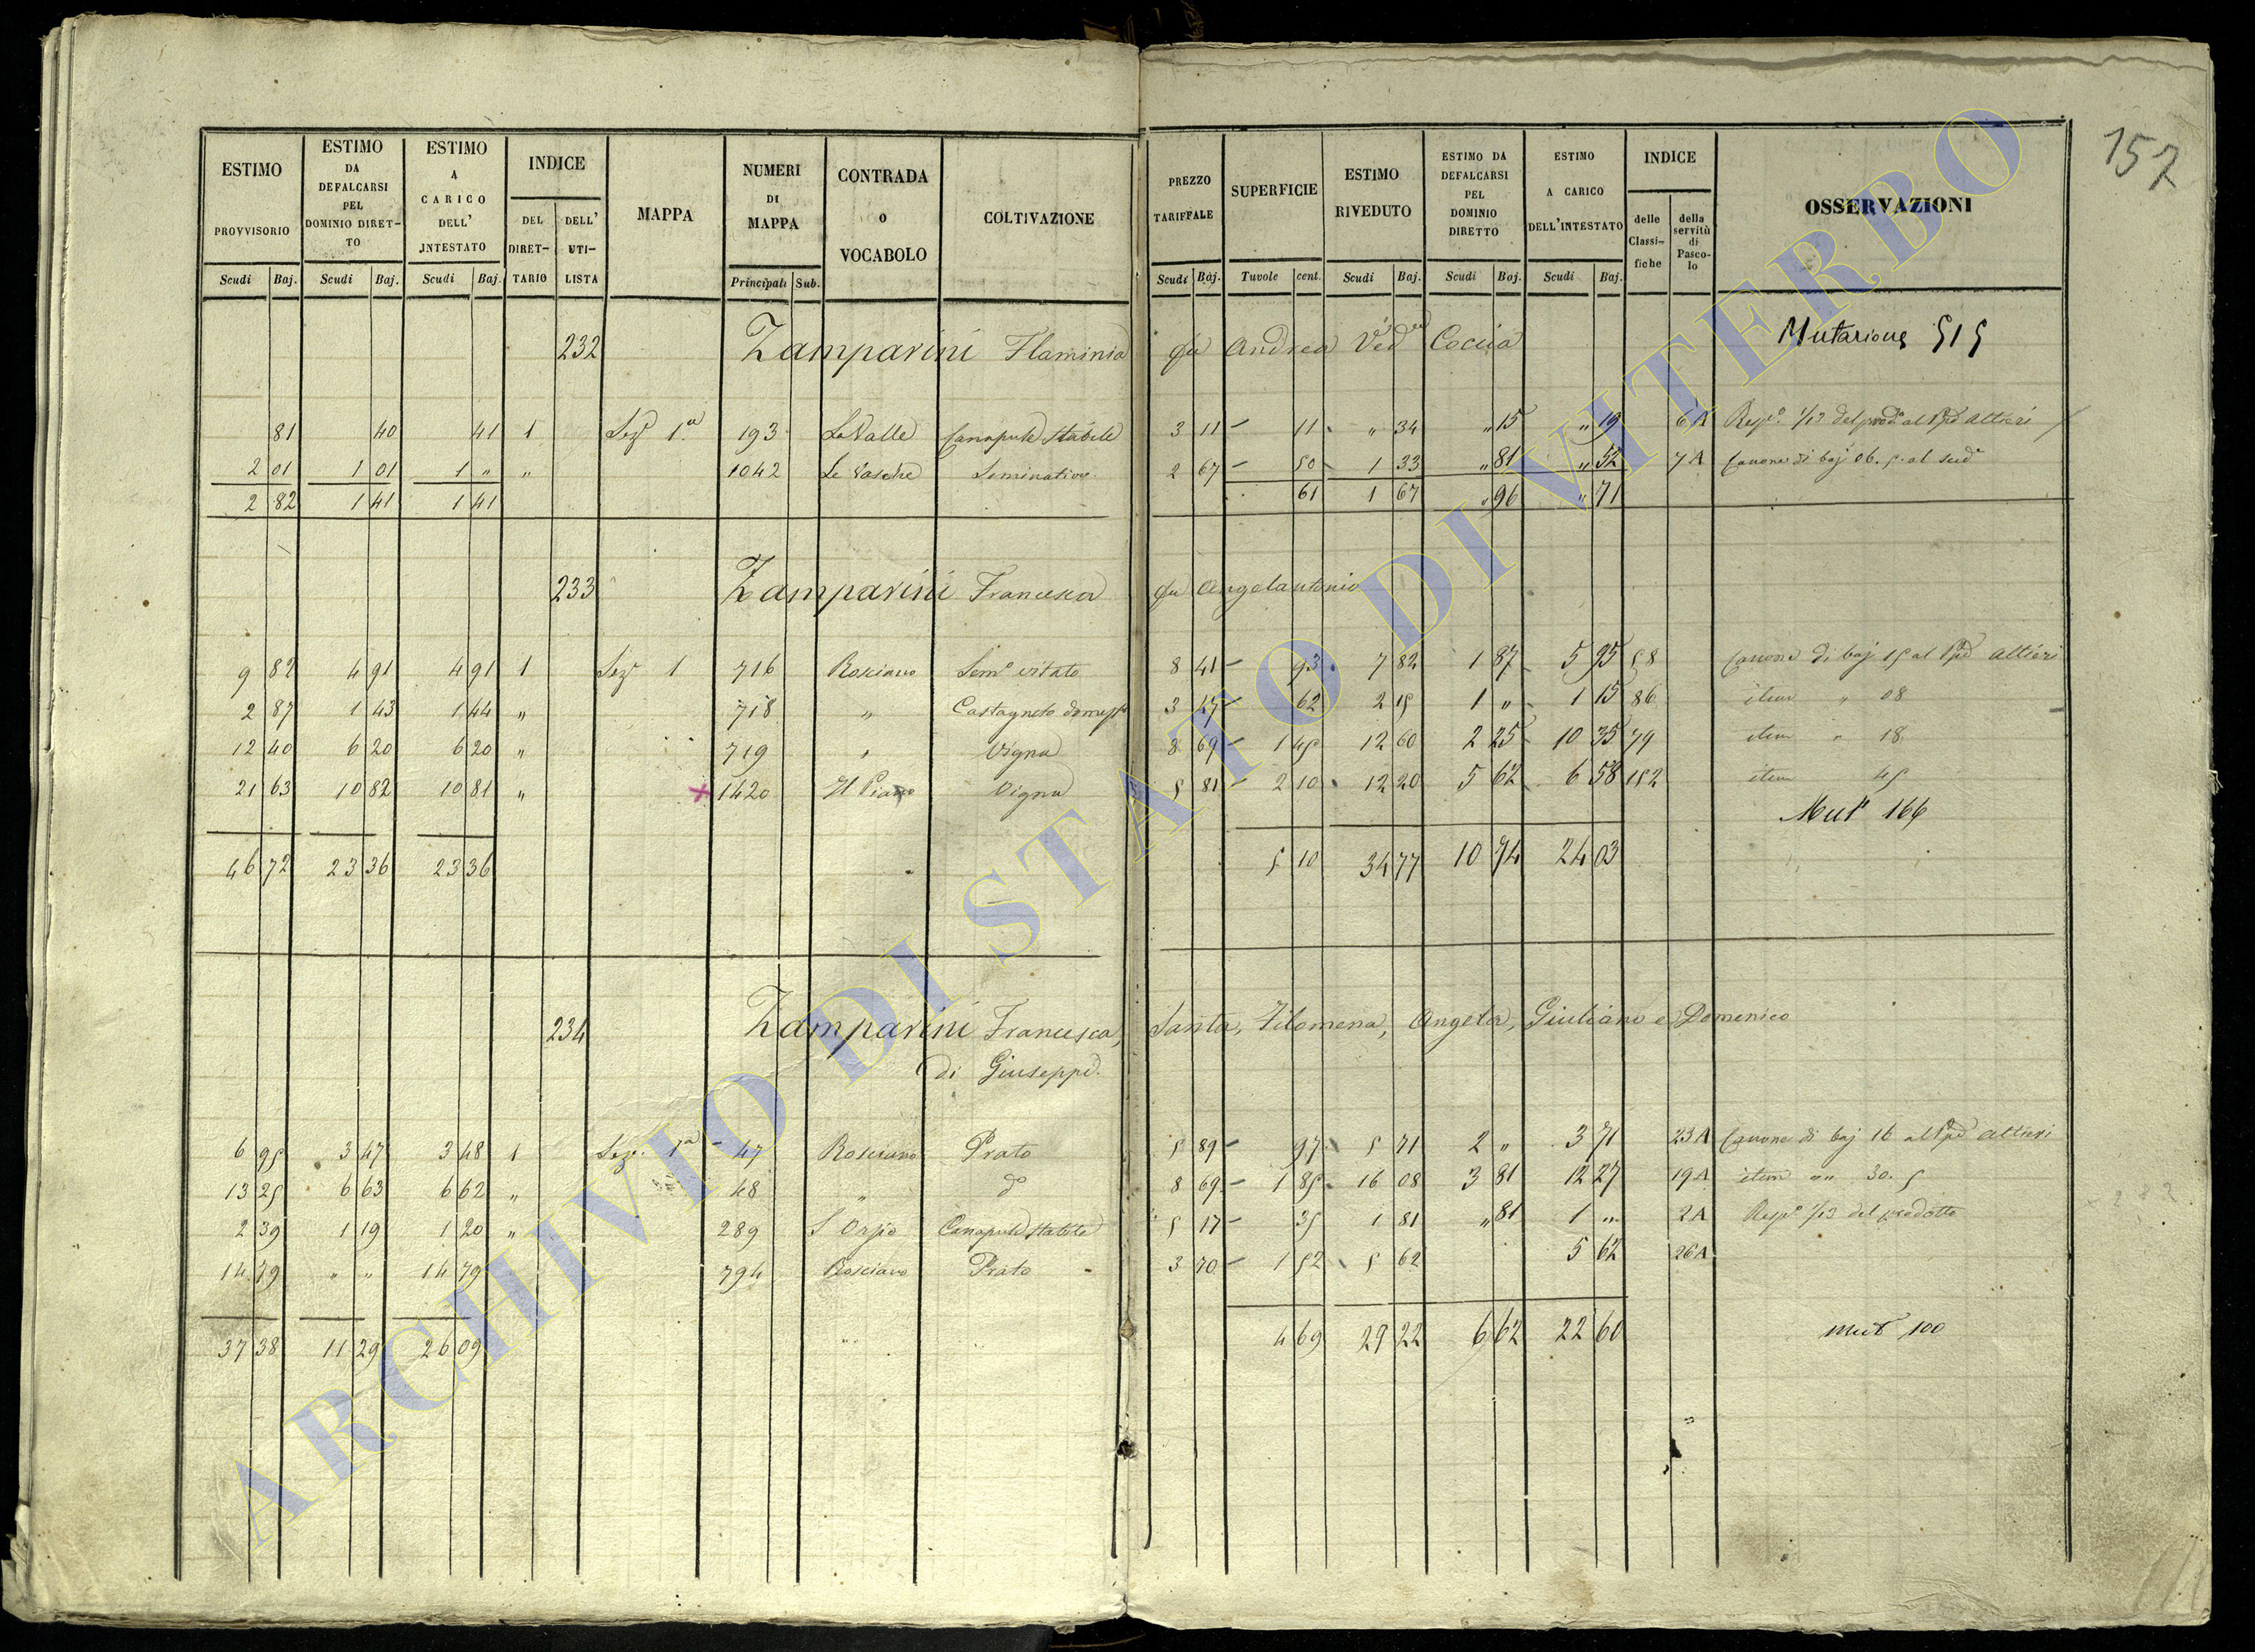 157
ESTIMO PROVVISORIO Scudi Baj.
ESTIMO DA DEFALCARSI PEL DOMINIO DIRETTO Scudi Baj.
ESTIMO A CARICO DELL' INTESTATO Scudi Baj
INDICE DEL DIRETTARIO DELL' UTILISTA
MAPPA
NUMERI DI MAPPA Principali Sub.
CONTRADA O VOCABOLO
COLTIVAZIONE
PREZZO TARIFFALE Scudi Baj.
SUPERFICIE Tavole cent.
ESTIMO RIVEDUTO Scudi Baj.
ESTIMO DA DEFALCARSI PEL DOMINIO DIRETTO Scudi Baj.
ESTIMO A CARICO DELL'INTESTATO Scudi Baj.
INDICE delle Classifiche della servitù di Pascolo
OSSERVAZIONI
232 Zamparini Flaminia fu Andrea Ved Coccia Mutazione 515
81 40 41 1 Sez 1a 193 La Valle Canapule stabile 3 11 11 " 34 " 15 " 19 6A 1/13 del al Altieri
2 01 1 01 1 " " 1042 Le Vasche Seminativo 2 67 50 1 33 " 81 " 52 7A Canone di baj 06.5 al sud
2 82 1 41 1 41 61 1 67 " 96 " 71
233 Zamparini Francesca fu Angelantonio
9 82 4 91 4 91 1 Sez 1 716 Rosciano Sem vitato 8 41 93 7 82 1 87 5 95 58 Canone di baj 15 al Altieri
2 87 1 43 1 44 " 718 " Castagneto 3 47 62 2 15 1 " 1 15 86 item " 08
12 40 6 20 6 20 " 719 " Vigna 8 69 1 45 12 60 2 25 10 35 79 item " 18
21 63 10 82 10 81 " 1420 Il Piano Vigna 5 81 2 10 12 20 5 62 6 58 152 item 45
Mut 166
46 72 23 36 23 36 5 10 34 77 10 74 24 03
234 Zamparini Francesca, Santa, Filomena, Angela, Giuliano e Domenico
di Giuseppe.
6 95 3 47 3 48 1 Sez. 1a 47 Rosciano Prato 5 89 97 5 71 2 " 3 71 23A Canone di baj 16 al Altieri
13 25 6 63 6 62 " 48 " do 8 69 1 85 16 08 3 81 12 27 19A item 30.5
2 39 1 19 1 20 " 289 S Orsio Canapule stabile 5 17 35 1 81 " 81 1 " 2A 1/13 del prodotto
14 79 " " 14 79 794 Rosciano Prato 3 70 1 52 5 62 5 62 26A
37 38 11 29 26 09 4 69 29 22 6 62 22 60 Mut 100
ARCHIVIO DI STATO DI VITERBO